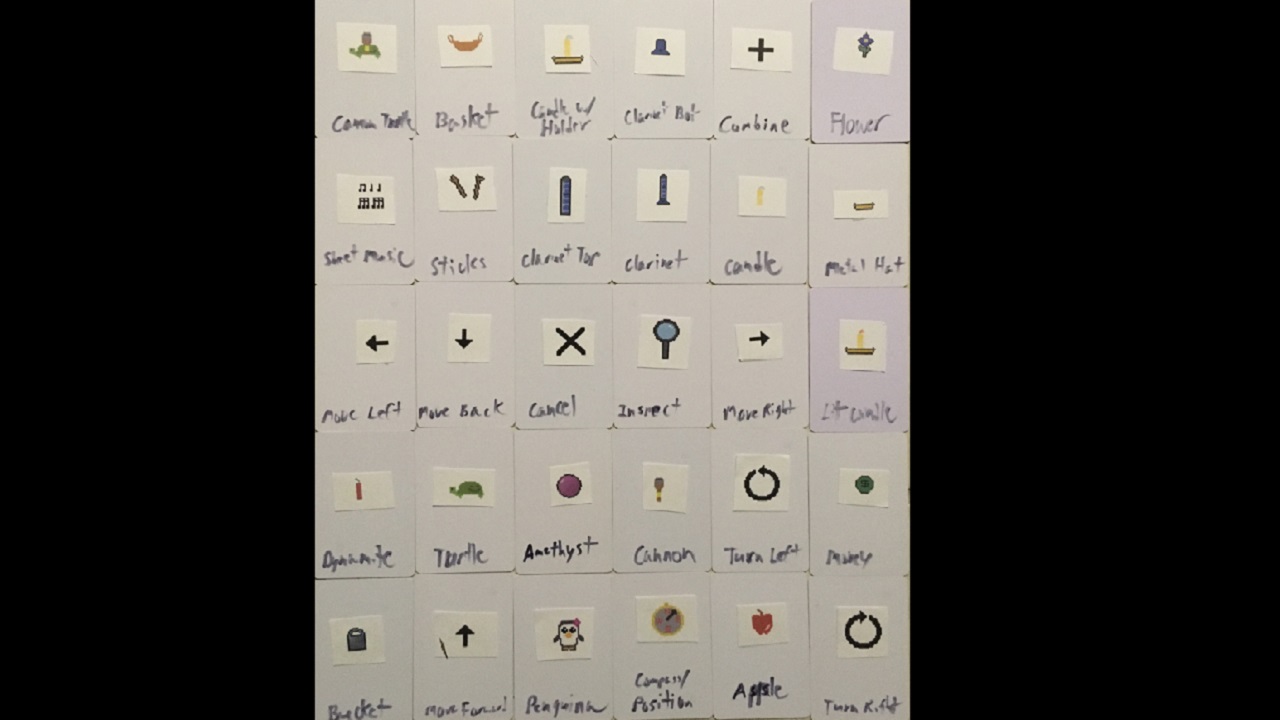 Cannon Turtle
Basket
Candle w/
Holder
Clarinet Bot
Combine
Flower
Sheet Music
Sticks
Clarinet Top
Clarinet
Candle
Metal Hat
Move Left
Move Back
Cancel
Inspect
Move Right
Lit Candle
Dynamite
Turtle
Amethyst
Cannon
Turn Left
Money
Bucket
Move Forward
Penguin
Compass/
Position
Apple
Turn Right